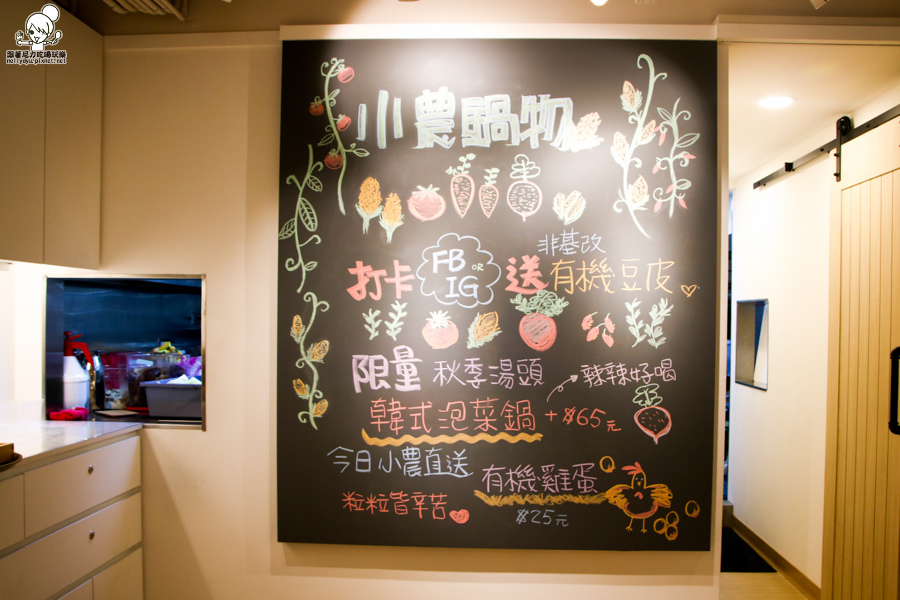 跟著尼力吃喝玩樂
nellydyu.pixnet.net
小農鍋物
非基改
打卡 FB OR IG 送 有機豆皮
限量 秋季湯頭 辣辣好喝
韓式泡菜鍋 +$65元
今日小農直送 有機雞蛋
粒粒皆辛苦 $25元